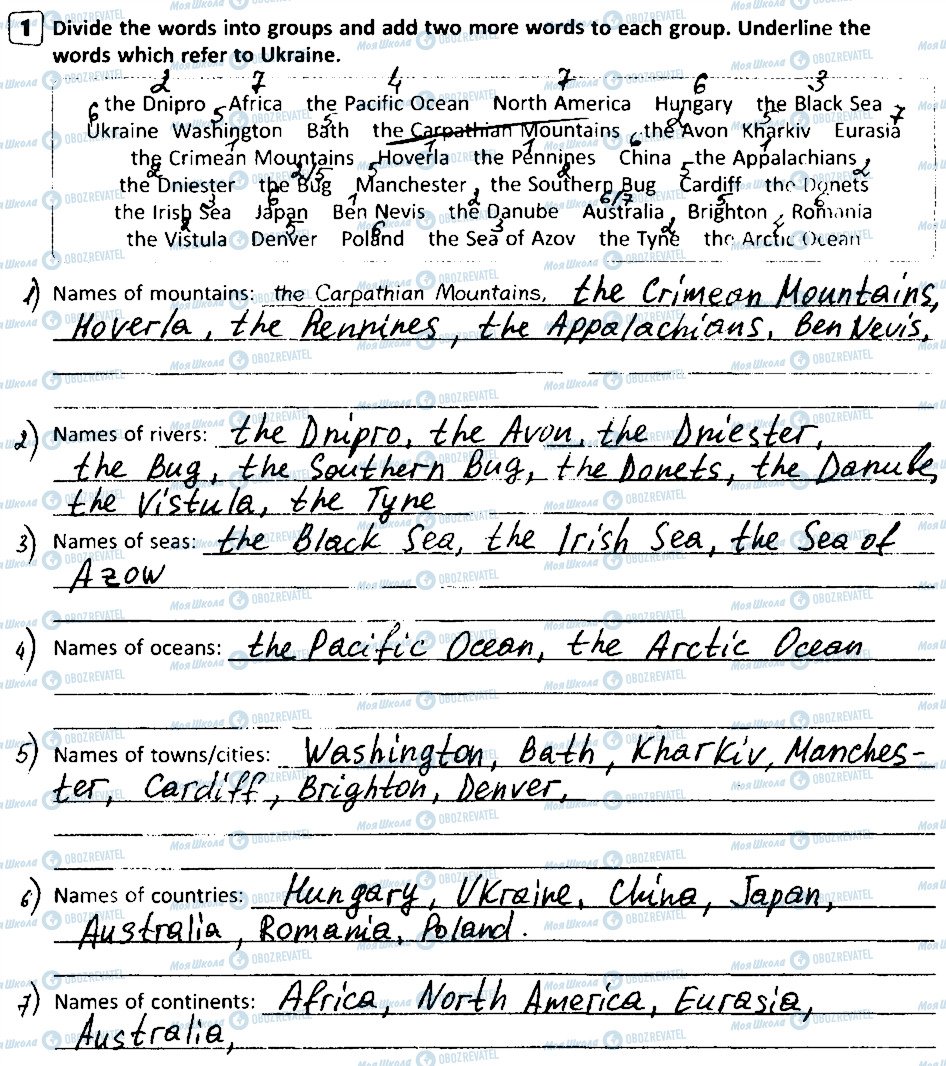 1 Divide the words into groups and add two more words to each group. Underline the
words which refer to Ukraine.
2 7 4 7 6 3
the Dnipro Africa the Pacific Ocean North America Hungary the Black Sea
6 5 5 2 5 7
Ukraine Washington Bath the Carpathian Mountains the Avon Kharkiv Eurasia
1 1 1 6 1
the Crimean Mountains Hoverla the Pennines China the Appalachians
2 2/5 5 2 5 2
the Dniester the Bug Manchester the Southern Bug Cardiff the Donets
3 6 1 2 6/7 5 6
the Irish Sea Japan Ben Nevis the Danube Australia Brighton Romania
2 5 6 3 2 4
the Vistula Denver Poland the Sea of Azov the Tyne the Arctic Ocean
1) Names of mountains: the Carpathian Mountains, the Crimean Mountains,
Hoverla, the Pennines, the Appalachians, Ben Nevis,
2) Names of rivers: the Dnipro, the Avon, the Dniester,
the Bug, the Southern Bug, the Donets, the Danube,
the Vistula, the Tyne
3) Names of seas: the Black Sea, the Irish Sea, the Sea of
Azow
4) Names of oceans: the Pacific Ocean, the Arctic Ocean
5) Names of towns/cities: Washington, Bath, Kharkiv, Manches-
ter, Cardiff, Brighton, Denver,
6) Names of countries: Hungary, Ukraine, China, Japan,
Australia, Romania, Poland.
7) Names of continents: Africa, North America, Eurasia,
Australia,
Моя Школа OBOZREVATEL